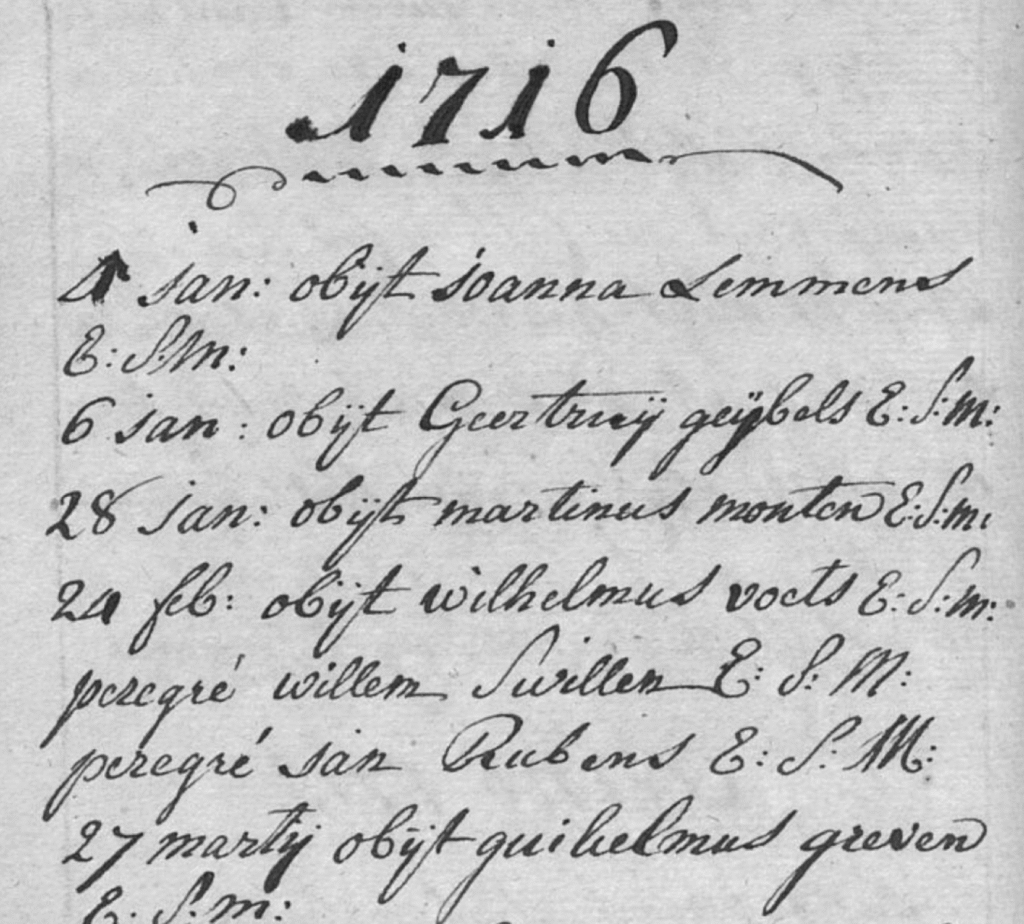 1716
4 jan: obijt joanna Lemmens
E: S: M:
6 jan: obijt Geertruij geijbels E: S: m:
28 jan: obijt martinus monten E: S: m:
24 feb: obijt wilhelmus voets E: S: m:
peregré willem Swillen E: S: M:
peregré jan Rubens E: S: M:
27 martij obijt guilielmus greven
E: S: m: